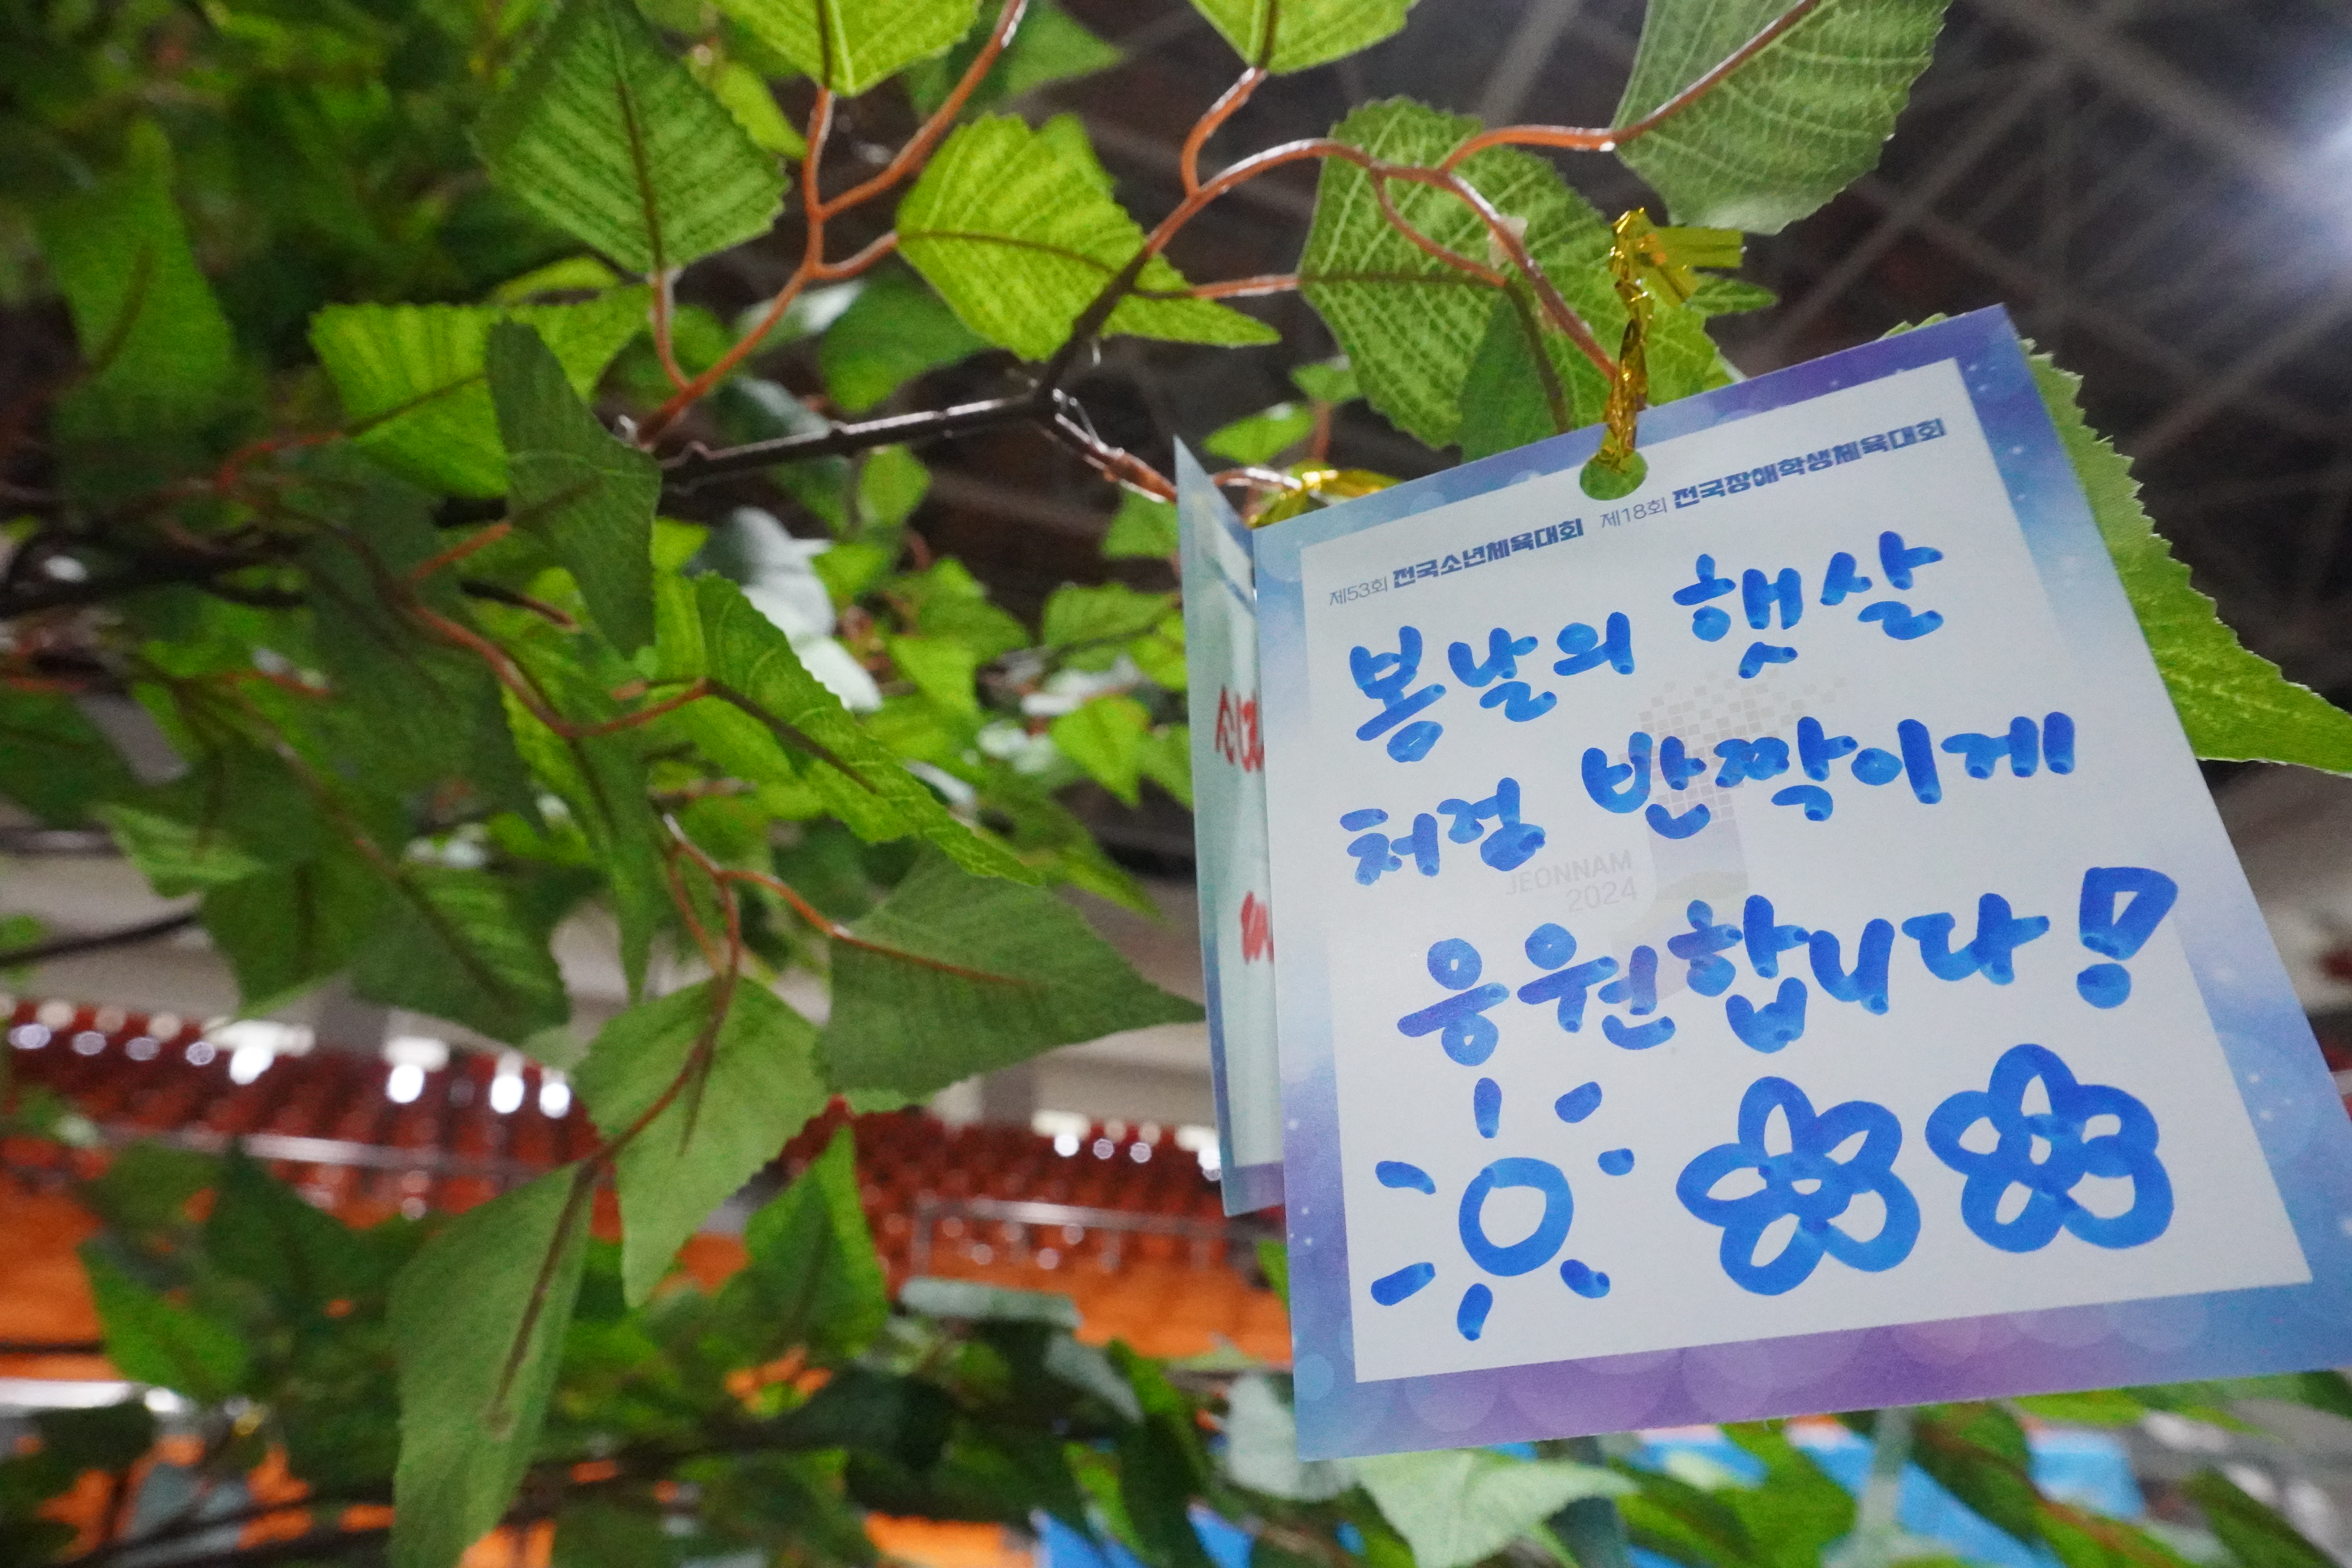 제53회 전국소년체육대회 제18회 전국장애학생체육대회
봄날의 햇살
처럼 반짝이게
응원합니다!
JEONNAM
2024